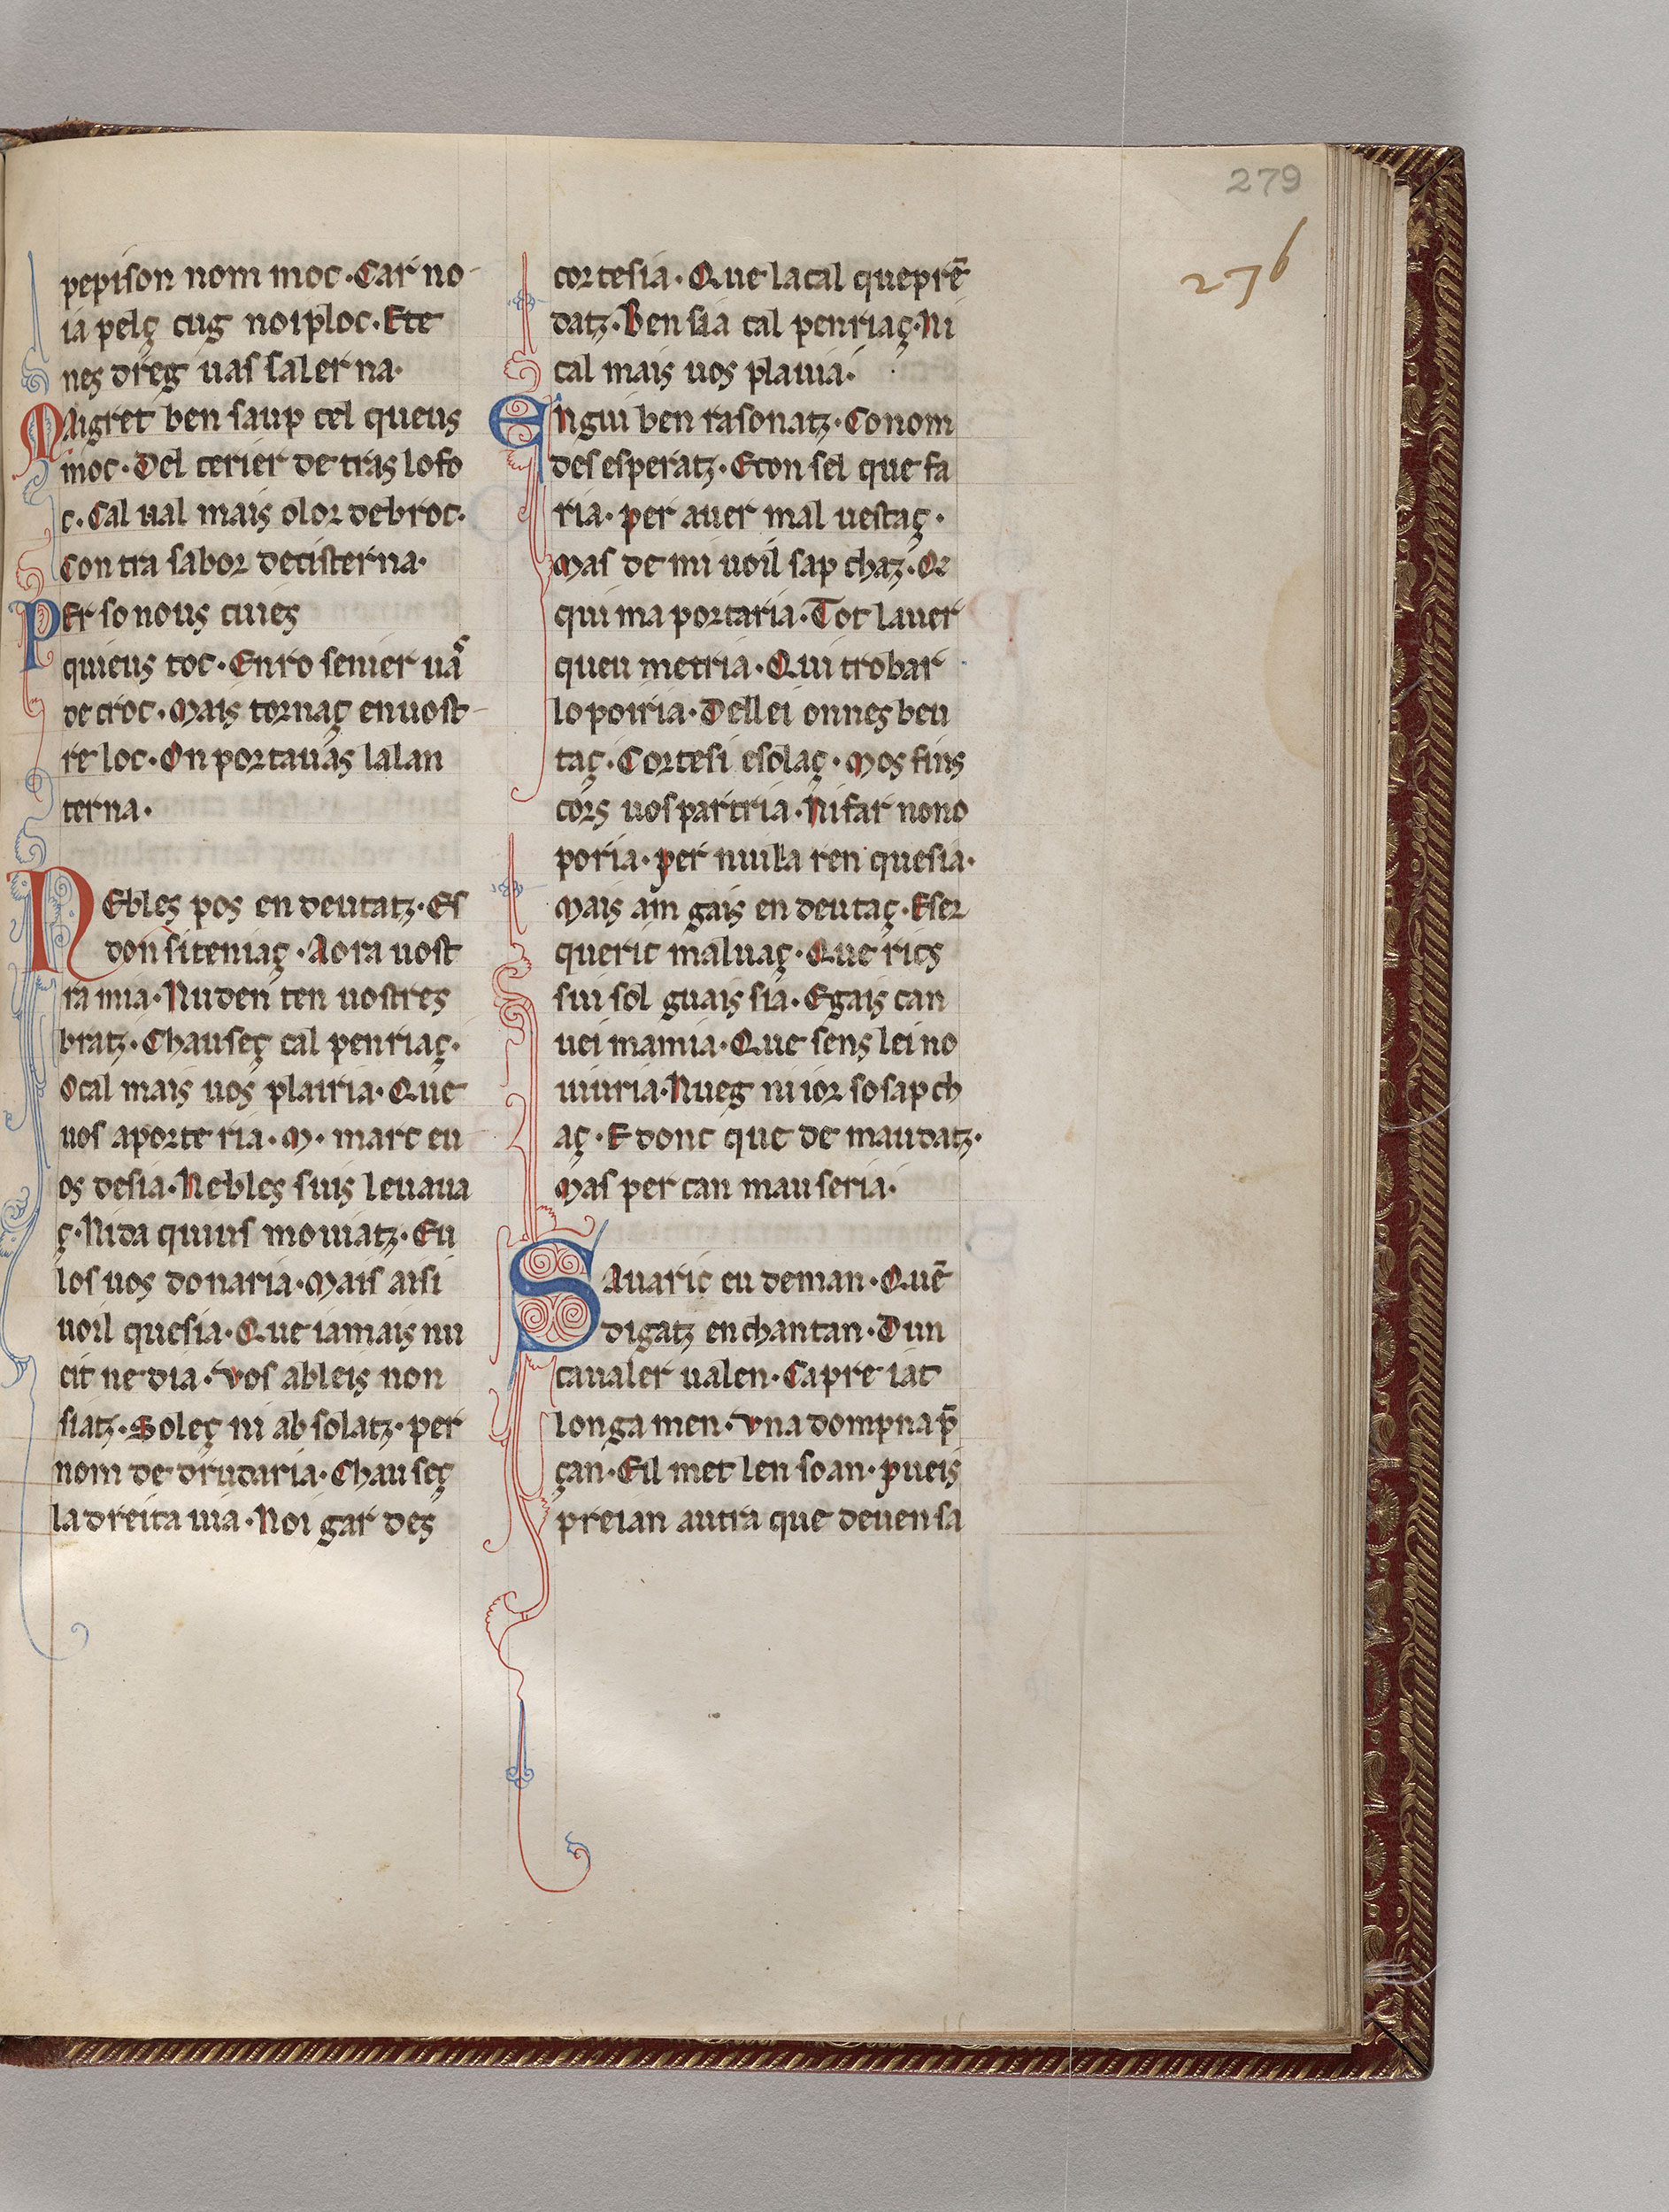 279
276
pepison nom moc · Car no-
ia pelç cug noiploc · Ete
nes dreg uas salerna ·
Maigret ben saup cel queus
moc · Del cerier de tras lofo
c · Cal ual mais olor debroc ·
Contra sabor decisterna ·
Per so nous cuies
quieus toc · Enro senier uas
de croc · Mais tornaç enuost-
re loc · On portauas lalan
terna ·
NEbles pos endeutatz · Es
don siteniaç · Aora uost
ra mia · Nuden ten uostres
bratz · Chauseç cal penriaç ·
Ocal mais uos plairia · Que
uos aporte ria · M · marc eu
os desia · Nebles suis leuaua
ç · Nida quius mouiatz · Eu
los uos donaria · Mais aisi
uoil quesia · Que iamais nu
eit ne dia · Vos ableis non
siatz · Soleç ni ab solatz · per
nom de drudaria · Chauseç
la dreita uia · Noi gar des
cortesia · Que lacal queprē
datz · Ben sia cal penriaç · Ni
cal mais uos plauia ·
Engui ben rasonatz · Conom
desesperatz · Econ sel que fa
ria · per auer mal uestaç ·
Mas de mi uoil sap chaz · Qe
qui ma portaria · Tot lauer
queu metria · Qui trobar
lo poiria · Dellei onnes beu
taç · Cortesi esolaç · Mos fins
cors uos partria · Ni far nono
poria · per nuilla ren quesia ·
Mais am gais en deutaç · Eser
queric maluaç · Que rics
sui sol guais sia · Egais can
uei mamia · Que sens lei no
uiuria · Nueg ni ior so sapch
aç · E donc que de maudatz ·
Mas per can mau seria ·
SAuaric eu deman · Quē
digatz enchantan · Dun
caualer ualen · Capre iat
longa men · Vna dompna p̄
çan · Eil met len soan · pueis
preian autra que deuensa